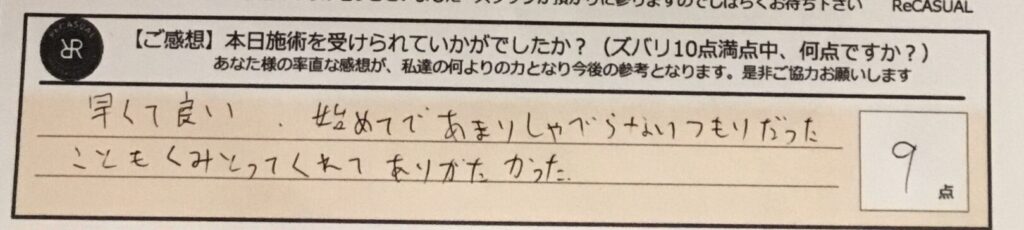 スタッフが預かりに参りますのでしばらくお待ち下さい ReCASUAL
RECASUAL
【ご感想】本日施術を受けられていかがでしたか？（ズバリ10点満点中、何点ですか？）
あなた様の率直な感想が、私達の何よりの力となり今後の参考となります。是非ご協力お願いします
早くて良い、始めてであまりしゃべらないつもりだった
こともくみとってくれてありがたかった。
9点